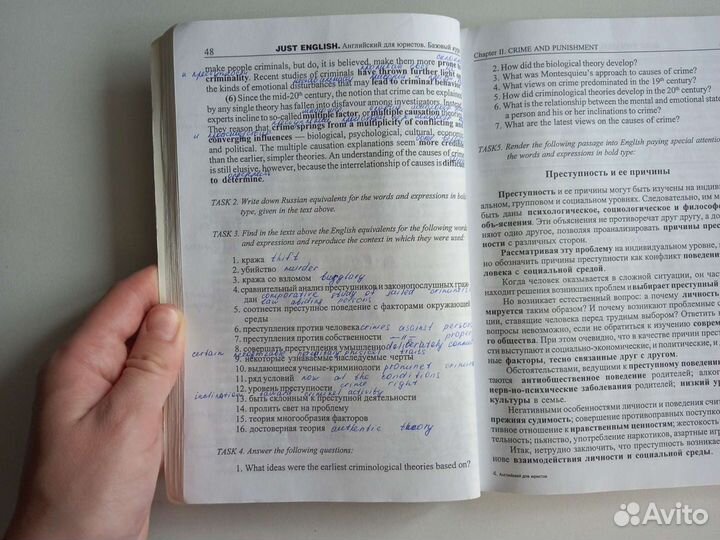 48
JUST ENGLISH. Английский для юристов. Базовый курс
make people criminals, but do, it is believed, make them more prone to
criminality. Recent studies of criminals have thrown further light on
the kinds of emotional disturbances that may lead to criminal behavior.
(6) Since the mid-20th century, the notion that crime can be explained
by any single theory has fallen into disfavour among investigators. Instead,
experts incline to so-called multiple factor, or multiple causation theories.
They reason that crime springs from a multiplicity of conflicting and
converging influences — biological, psychological, cultural, economic
and political. The multiple causation explanations seem more credible
than the earlier, simpler theories. An understanding of the causes of crime
is still elusive, however, because the interrelationship of causes is difficult
to determine.
TASK 2. Write down Russian equivalents for the words and expressions in bold
type, given in the text above.
TASK 3. Find in the texts above the English equivalents for the following words
and expressions and reproduce the context in which they were used:
1. кража theft
2. убийство murder
3. кража со взломом burglary
4. сравнительный анализ преступников и законопослушных граж-
дан comparative study of jailed criminals
law abiding persons
5. соотнести преступное поведение с факторами окружающей
среды
6. преступления против человека crimes against person
7. преступления против собственности —"— proper
8. совершать преступления умышленно deliberately commit
certain hereditary physical traits
9. некоторые узнаваемые наследуемые черты
10. выдающиеся ученые-криминологи
11. ряд условий
12. уровень преступности crime right
inclination toward criminal activity
13. быть склонным к преступной деятельности
14. пролить свет на проблему
15. теория многообразия факторов
16. достоверная теория authentic theory
TASK 4. Answer the following questions:
1. What ideas were the earliest criminological theories based on?
Chapter II. CRIME AND PUNISHMENT
2. How did the biological theory develop?
3. What was Montesquieu's approach to causes of crime?
4. What views on crime predominated in the 19th century?
5. How did criminological theories develop in the 20th century?
6. What is the relationship between the mental and emotional state
a person and his or her inclinations to crime?
7. What are the latest views on the causes of crime?
TASK5. Render the following passage into English paying special attention
the words and expressions in bold type:
Преступность и ее причины
Преступность и ее причины могут быть изучены на индивид
альном, групповом и социальном уровнях. Следовательно, им м
быть даны психологическое, социологическое и философс
объ-яснения. Эти объяснения не противоречат друг другу, а до
няют одно другое, позволяя проанализировать причины прест
ности с различных сторон.
Рассматривая эту проблему на индивидуальном уровне,
но обозначить причины преступности как конфликт поведени
ловека с социальной средой.
Когда человек оказывается в сложной ситуации, он час
находит решения возникших проблем и выбирает преступный п
Но возникает вопрос: а почему личност
мируется таким образом? И почему возникают проблемные с
ции, ставящие человека перед трудным выбором? Ответить н
вопросы невозможно, если не обратиться к изучению совреме
го общества. При этом очевидно, что в качестве причин преступ
сти выступают и социально-экономические, и политические, и
ные факторы, тесно связанные друг с другом.
Обстоятельствами, ведущими к преступному поведению
таются антиобщественное поведение родителей; алког
нерв-но-психические заболевания родителей; низкий у
культуры в семье.
Негативными особенностями личности и поведения счит
прежняя судимость; совершение противоправных поступк
тивное отношение к нравственным ценностям; жестокость
тельность; пьянство, употребление наркотиков, азартные игр
Итак, нетрудно заключить, что преступность возника
нове взаимодействия личности и социальной среды.
4. Английский для юристов
Avito